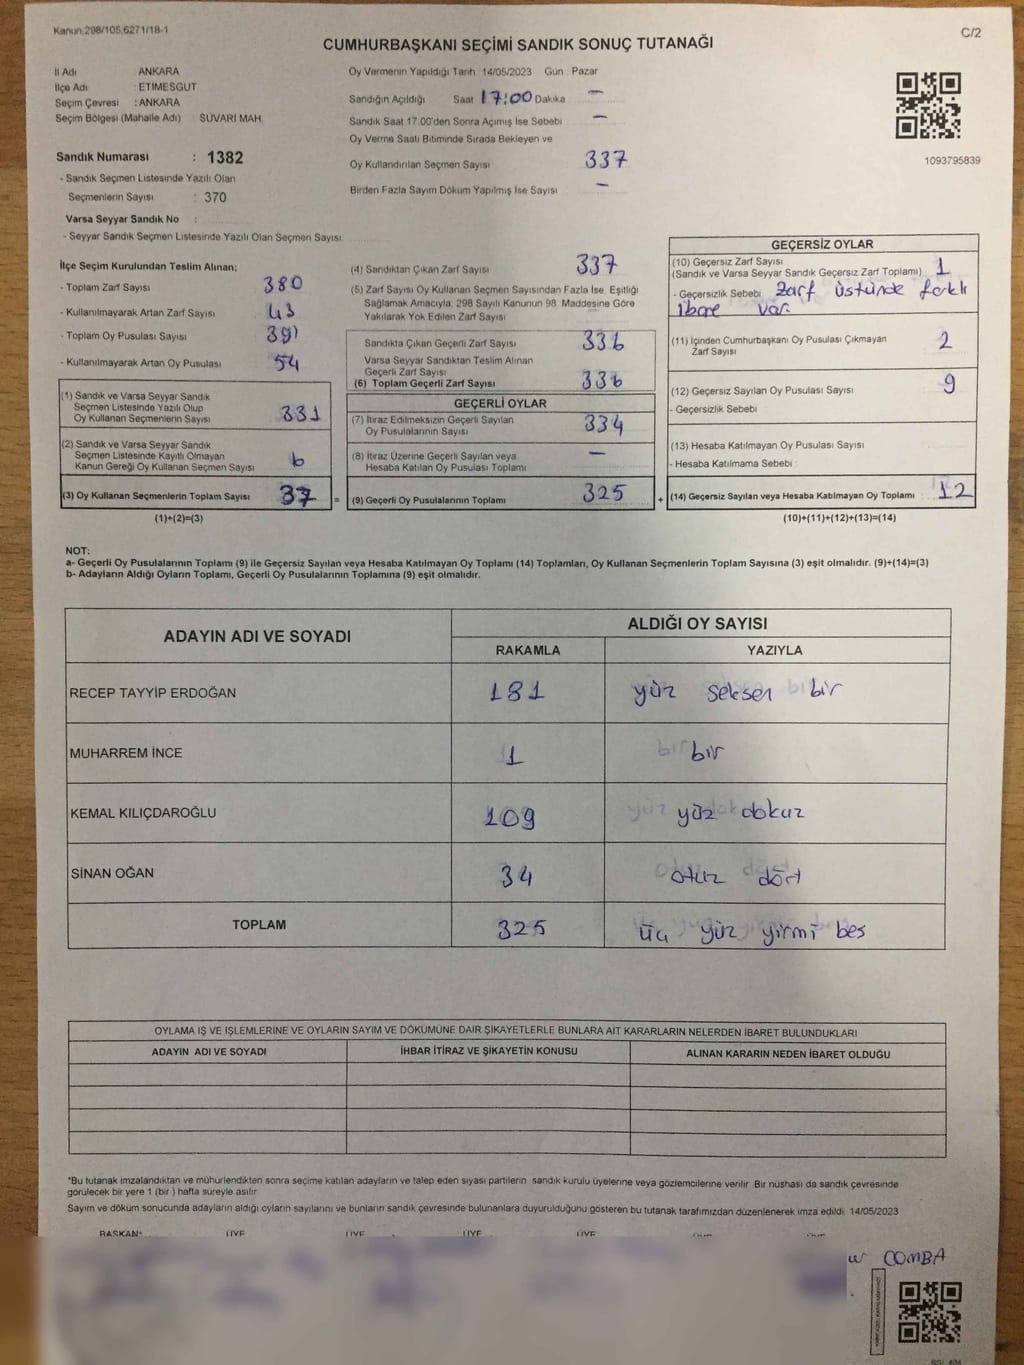 Kanun 298/105,6271/18-1
C/2
CUMHURBAŞKANI SEÇİMİ SANDIK SONUÇ TUTANAĞI
İl Adı ANKARA
İlçe Adı : ETİMESGUT
Seçim Çevresi : ANKARA
Seçim Bölgesi (Mahalle Adı) SUVARİ MAH.
Sandık Numarası : 1382
- Sandık Seçmen Listesinde Yazılı Olan
Seçmenlerin Sayısı : 370
Varsa Seyyar Sandık No :
- Seyyar Sandık Seçmen Listesinde Yazılı Olan Seçmen Sayısı
Oy Vermenin Yapıldığı Tarih 14/05/2023 Gün Pazar
Sandığın Açıldığı Saat 17:00 Dakika —
Sandık Saat 17.00'den Sonra Açımış İse Sebebi —
Oy Verme Saati Bitiminde Sırada Bekleyen ve
Oy Kullandırılan Seçmen Sayısı 337
Birden Fazla Sayım Döküm Yapılmış İse Sayısı —
1093795839
İlçe Seçim Kurulundan Teslim Alınan;
- Toplam Zarf Sayısı 380
- Kullanılmayarak Artan Zarf Sayısı 43
- Toplam Oy Pusulası Sayısı 391
- Kullanılmayarak Artan Oy Pusulası 54
(1) Sandık ve Varsa Seyyar Sandık
Seçmen Listesinde Yazılı Olup
Oy Kullanan Seçmenlerin Sayısı 331
(2) Sandık ve Varsa Seyyar Sandık
Seçmen Listesinde Kayıtlı Olmayan
Kanun Gereği Oy Kullanan Seçmen Sayısı 6
(3) Oy Kullanan Seçmenlerin Toplam Sayısı 37 =
(1)+(2)=(3)
(4) Sandıktan Çıkan Zarf Sayısı 337
(5) Zarf Sayısı Oy Kullanan Seçmen Sayısından Fazla İse, Eşitliği
Sağlamak Amacıyla, 298 Sayılı Kanunun 98. Maddesine Göre
Yakılarak Yok Edilen Zarf Sayısı
Sandıkta Çıkan Geçerli Zarf Sayısı 336
Varsa Seyyar Sandıktan Teslim Alınan
Geçerli Zarf Sayısı
(6) Toplam Geçerli Zarf Sayısı 336
GEÇERLİ OYLAR
(7) İtiraz Edilmeksizin Geçerli Sayılan
Oy Pusulalarının Sayısı 334
(8) İtiraz Üzerine Geçerli Sayılan veya
Hesaba Katılan Oy Pusulası Toplamı —
(9) Geçerli Oy Pusulalarının Toplamı 325 +
GEÇERSİZ OYLAR
(10) Geçersiz Zarf Sayısı
(Sandık ve Varsa Seyyar Sandık Geçersiz Zarf Toplamı) 1
- Geçersizlik Sebebi Zarf üstünde farklı
ibare var.
(11) İçinden Cumhurbaşkanı Oy Pusulası Çıkmayan
Zarf Sayısı 2
(12) Geçersiz Sayılan Oy Pusulası Sayısı 9
- Geçersizlik Sebebi
(13) Hesaba Katılmayan Oy Pusulası Sayısı
- Hesaba Katılmama Sebebi
(14) Geçersiz Sayılan veya Hesaba Katılmayan Oy Toplamı 12
(10)+(11)+(12)+(13)=(14)
NOT:
a- Geçerli Oy Pusulalarının Toplamı (9) ile Geçersiz Sayılan veya Hesaba Katılmayan Oy Toplamı (14) Toplamları, Oy Kullanan Seçmenlerin Toplam Sayısına (3) eşit olmalıdır. (9)+(14)=(3)
b- Adayların Aldığı Oyların Toplamı, Geçerli Oy Pusulalarının Toplamına (9) eşit olmalıdır.
ADAYIN ADI VE SOYADI ALDIĞI OY SAYISI
RAKAMLA YAZIYLA
RECEP TAYYİP ERDOĞAN 181 yüz seksen bir
MUHARREM İNCE 1 bir
KEMAL KILIÇDAROĞLU 109 yüz dokuz
SİNAN OĞAN 34 otuz dört
TOPLAM 325 üç yüz yirmi beş
OYLAMA İŞ VE İŞLEMLERİNE VE OYLARIN SAYIM VE DÖKÜMÜNE DAİR ŞİKAYETLERLE BUNLARA AİT KARARLARIN NELERDEN İBARET BULUNDUKLARI
ADAYIN ADI VE SOYADI İHBAR İTİRAZ VE ŞİKAYETİN KONUSU ALINAN KARARIN NEDEN İBARET OLDUĞU
*Bu tutanak imzalandıktan ve mühürlendikten sonra seçime katılan adayların ve talep eden siyasi partilerin sandık kurulu üyelerine veya gözlemcilerine verilir. Bir nüshası da sandık çevresinde
görülecek bir yere 1 (bir ) hafta süreyle asılır
Sayım ve döküm sonucunda adayların aldığı oyların sayılarını ve bunların sandık çevresinde bulunanlara duyurulduğunu gösteren bu tutanak tarafımızdan düzenlenerek imza edildi. 14/05/2023
BAŞKAN* ÜYE ÜYE ÜYE ÜYE
COMBA